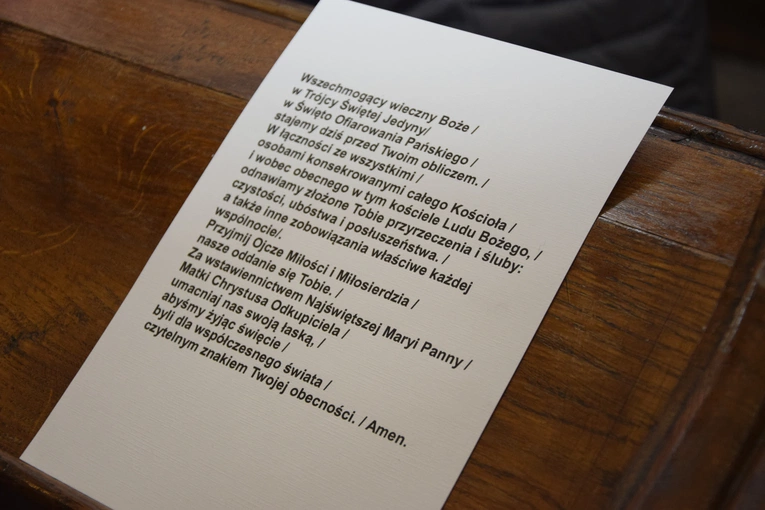 Wszechmogący wieczny Boże /
w Trójcy Świętej Jedyny/
w Święto Ofiarowania Pańskiego /
stajemy dziś przed Twoim obliczem. /
W łączności ze wszystkimi /
osobami konsekrowanymi całego Kościoła /
i wobec obecnego w tym kościele Ludu Bożego, /
odnawiamy złożone Tobie przyrzeczenia i śluby:
czystości, ubóstwa i posłuszeństwa. /
a także inne zobowiązania właściwe każdej
wspólnocie/.
Przyjmij Ojcze Miłości i Miłosierdzia /
nasze oddanie się Tobie. /
Za wstawiennictwem Najświętszej Maryi Panny /
Matki Chrystusa Odkupiciela /
umacniaj nas swoją łaską, /
abyśmy żyjąc święcie /
byli dla współczesnego świata /
czytelnym znakiem Twojej obecności. / Amen.